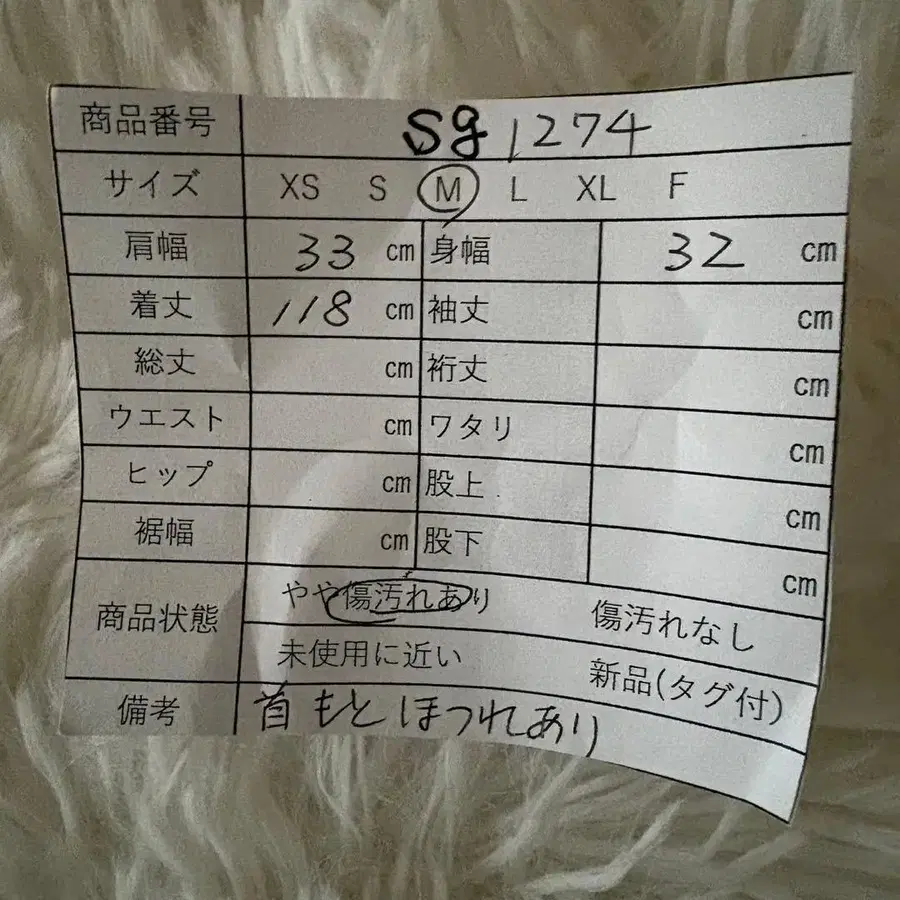 商品番号 sg1274
サイズ XS S M L XL F
肩幅 33 cm 身幅 32 cm
着丈 118 cm 袖丈 cm
総丈 cm 裄丈 cm
ウエスト cm ワタリ cm
ヒップ cm 股上 cm
裾幅 cm 股下 cm
商品状態 やや傷汚れあり 傷汚れなし
未使用に近い 新品(タグ付)
備考 首もとほつれあり